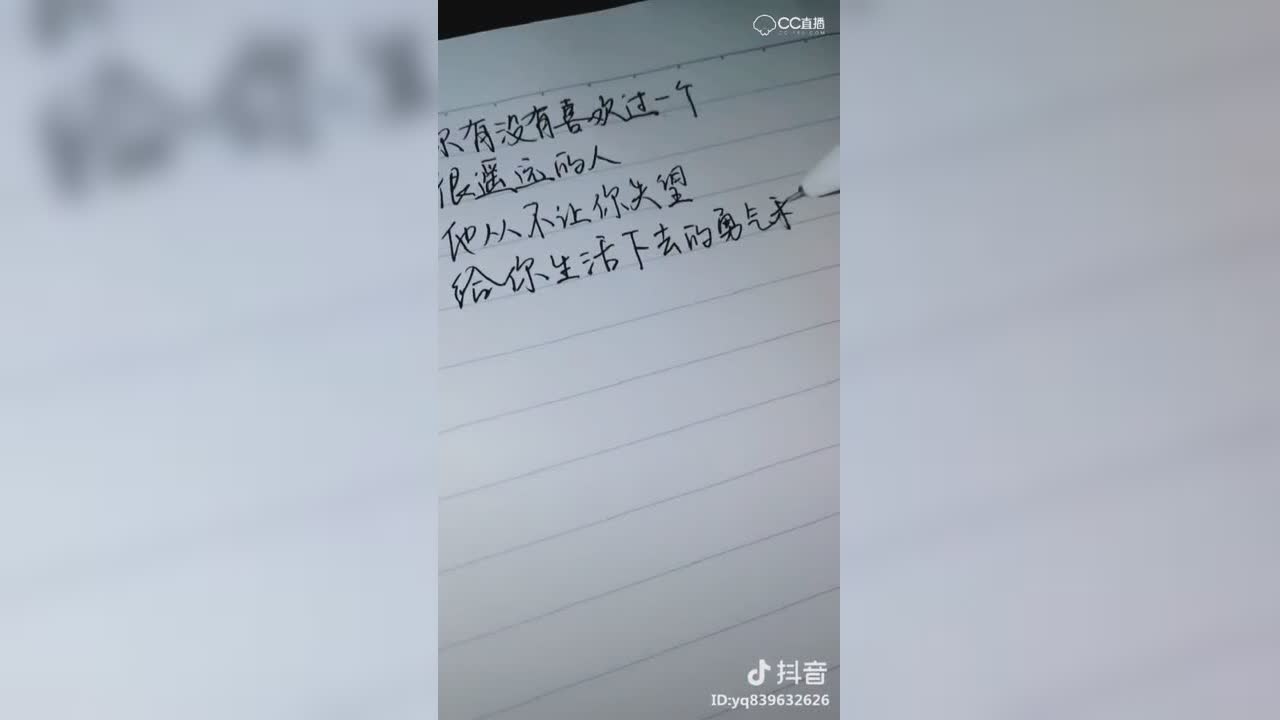 CC直播
CC.163.COM
你有没有喜欢过一个
很遥远的人
他从不让你失望
给你生活下去的勇气
抖音
ID:yq839632626